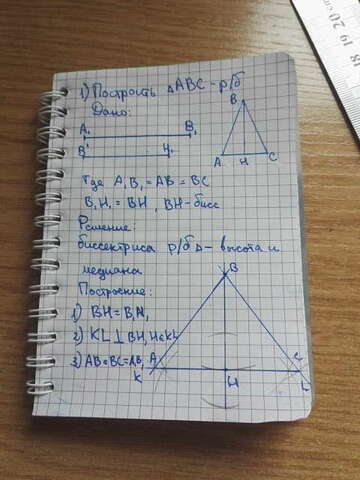 1) Построить △ABC - р/б
Дано:
A₁ B₁
B₁ H₁
B
A H C
где A₁B₁ = AB = BC
B₁H₁ = BH, BH - бисс
Решение
биссектриса р/б △ - высота и
медиана
Построение:
1) BH = B₁H₁
2) KL ⊥ BH, H ∈ KL
3) AB = BC = A₁B₁
B
K A H C L
18 19 20